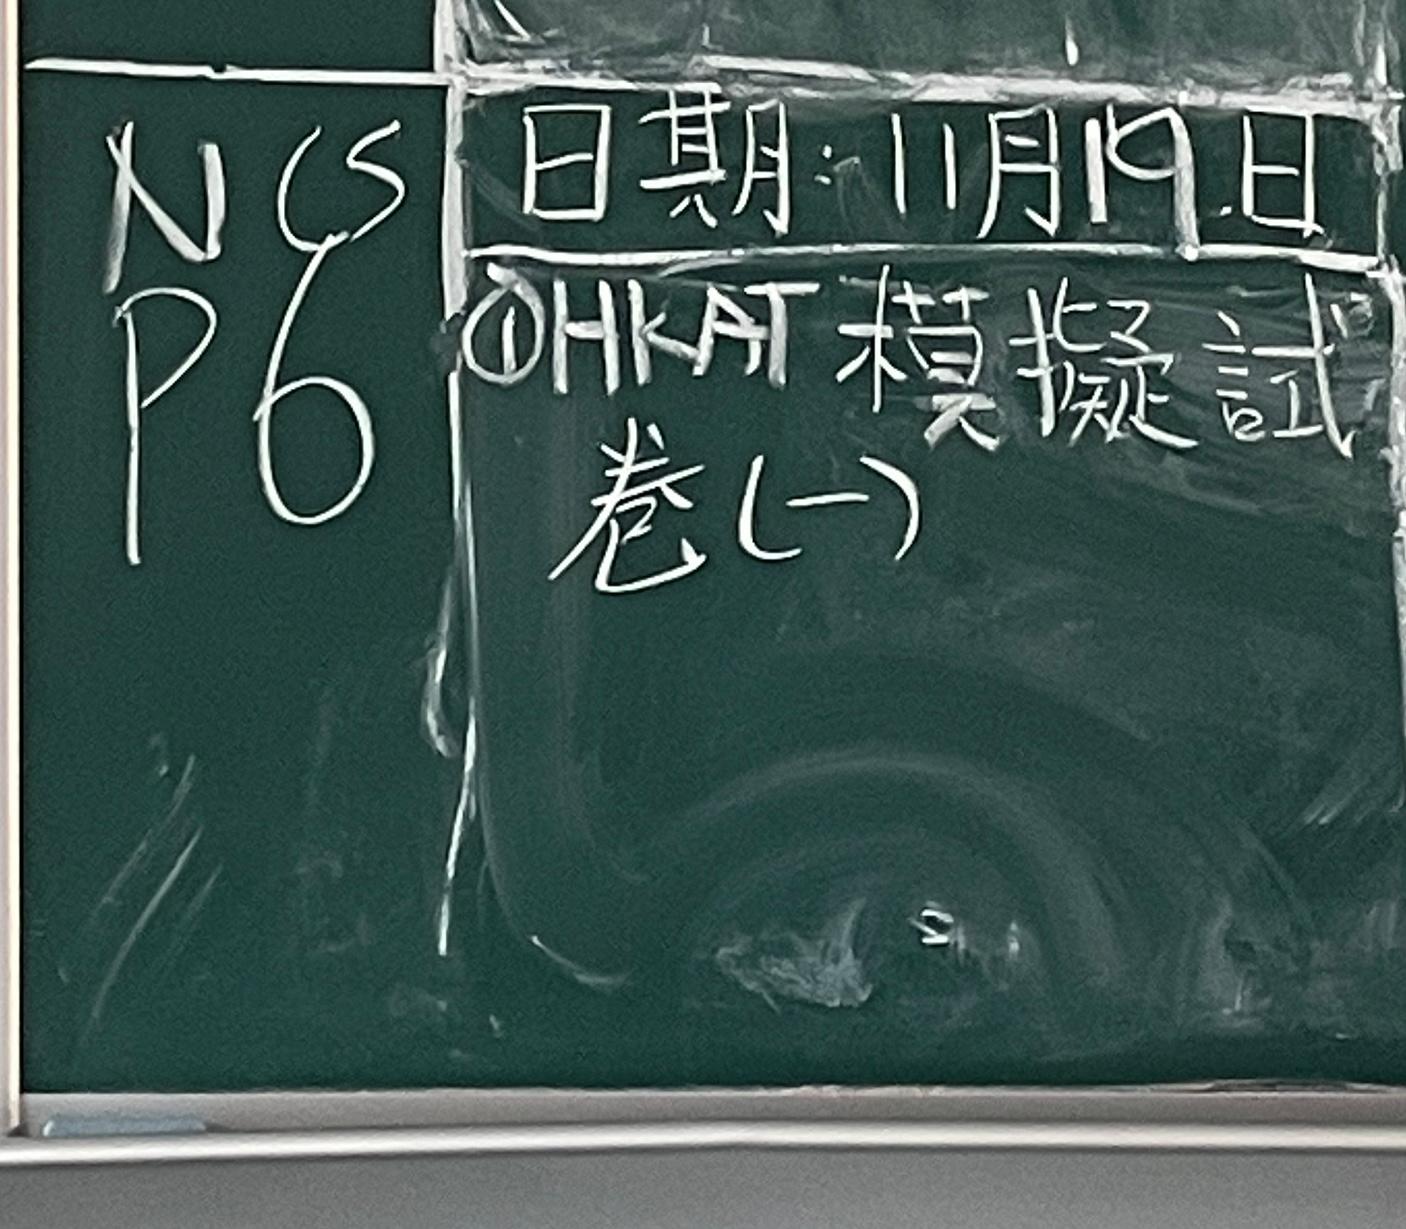 NCS
P6
日期:11月19日
①HKAT模擬試
卷(一)